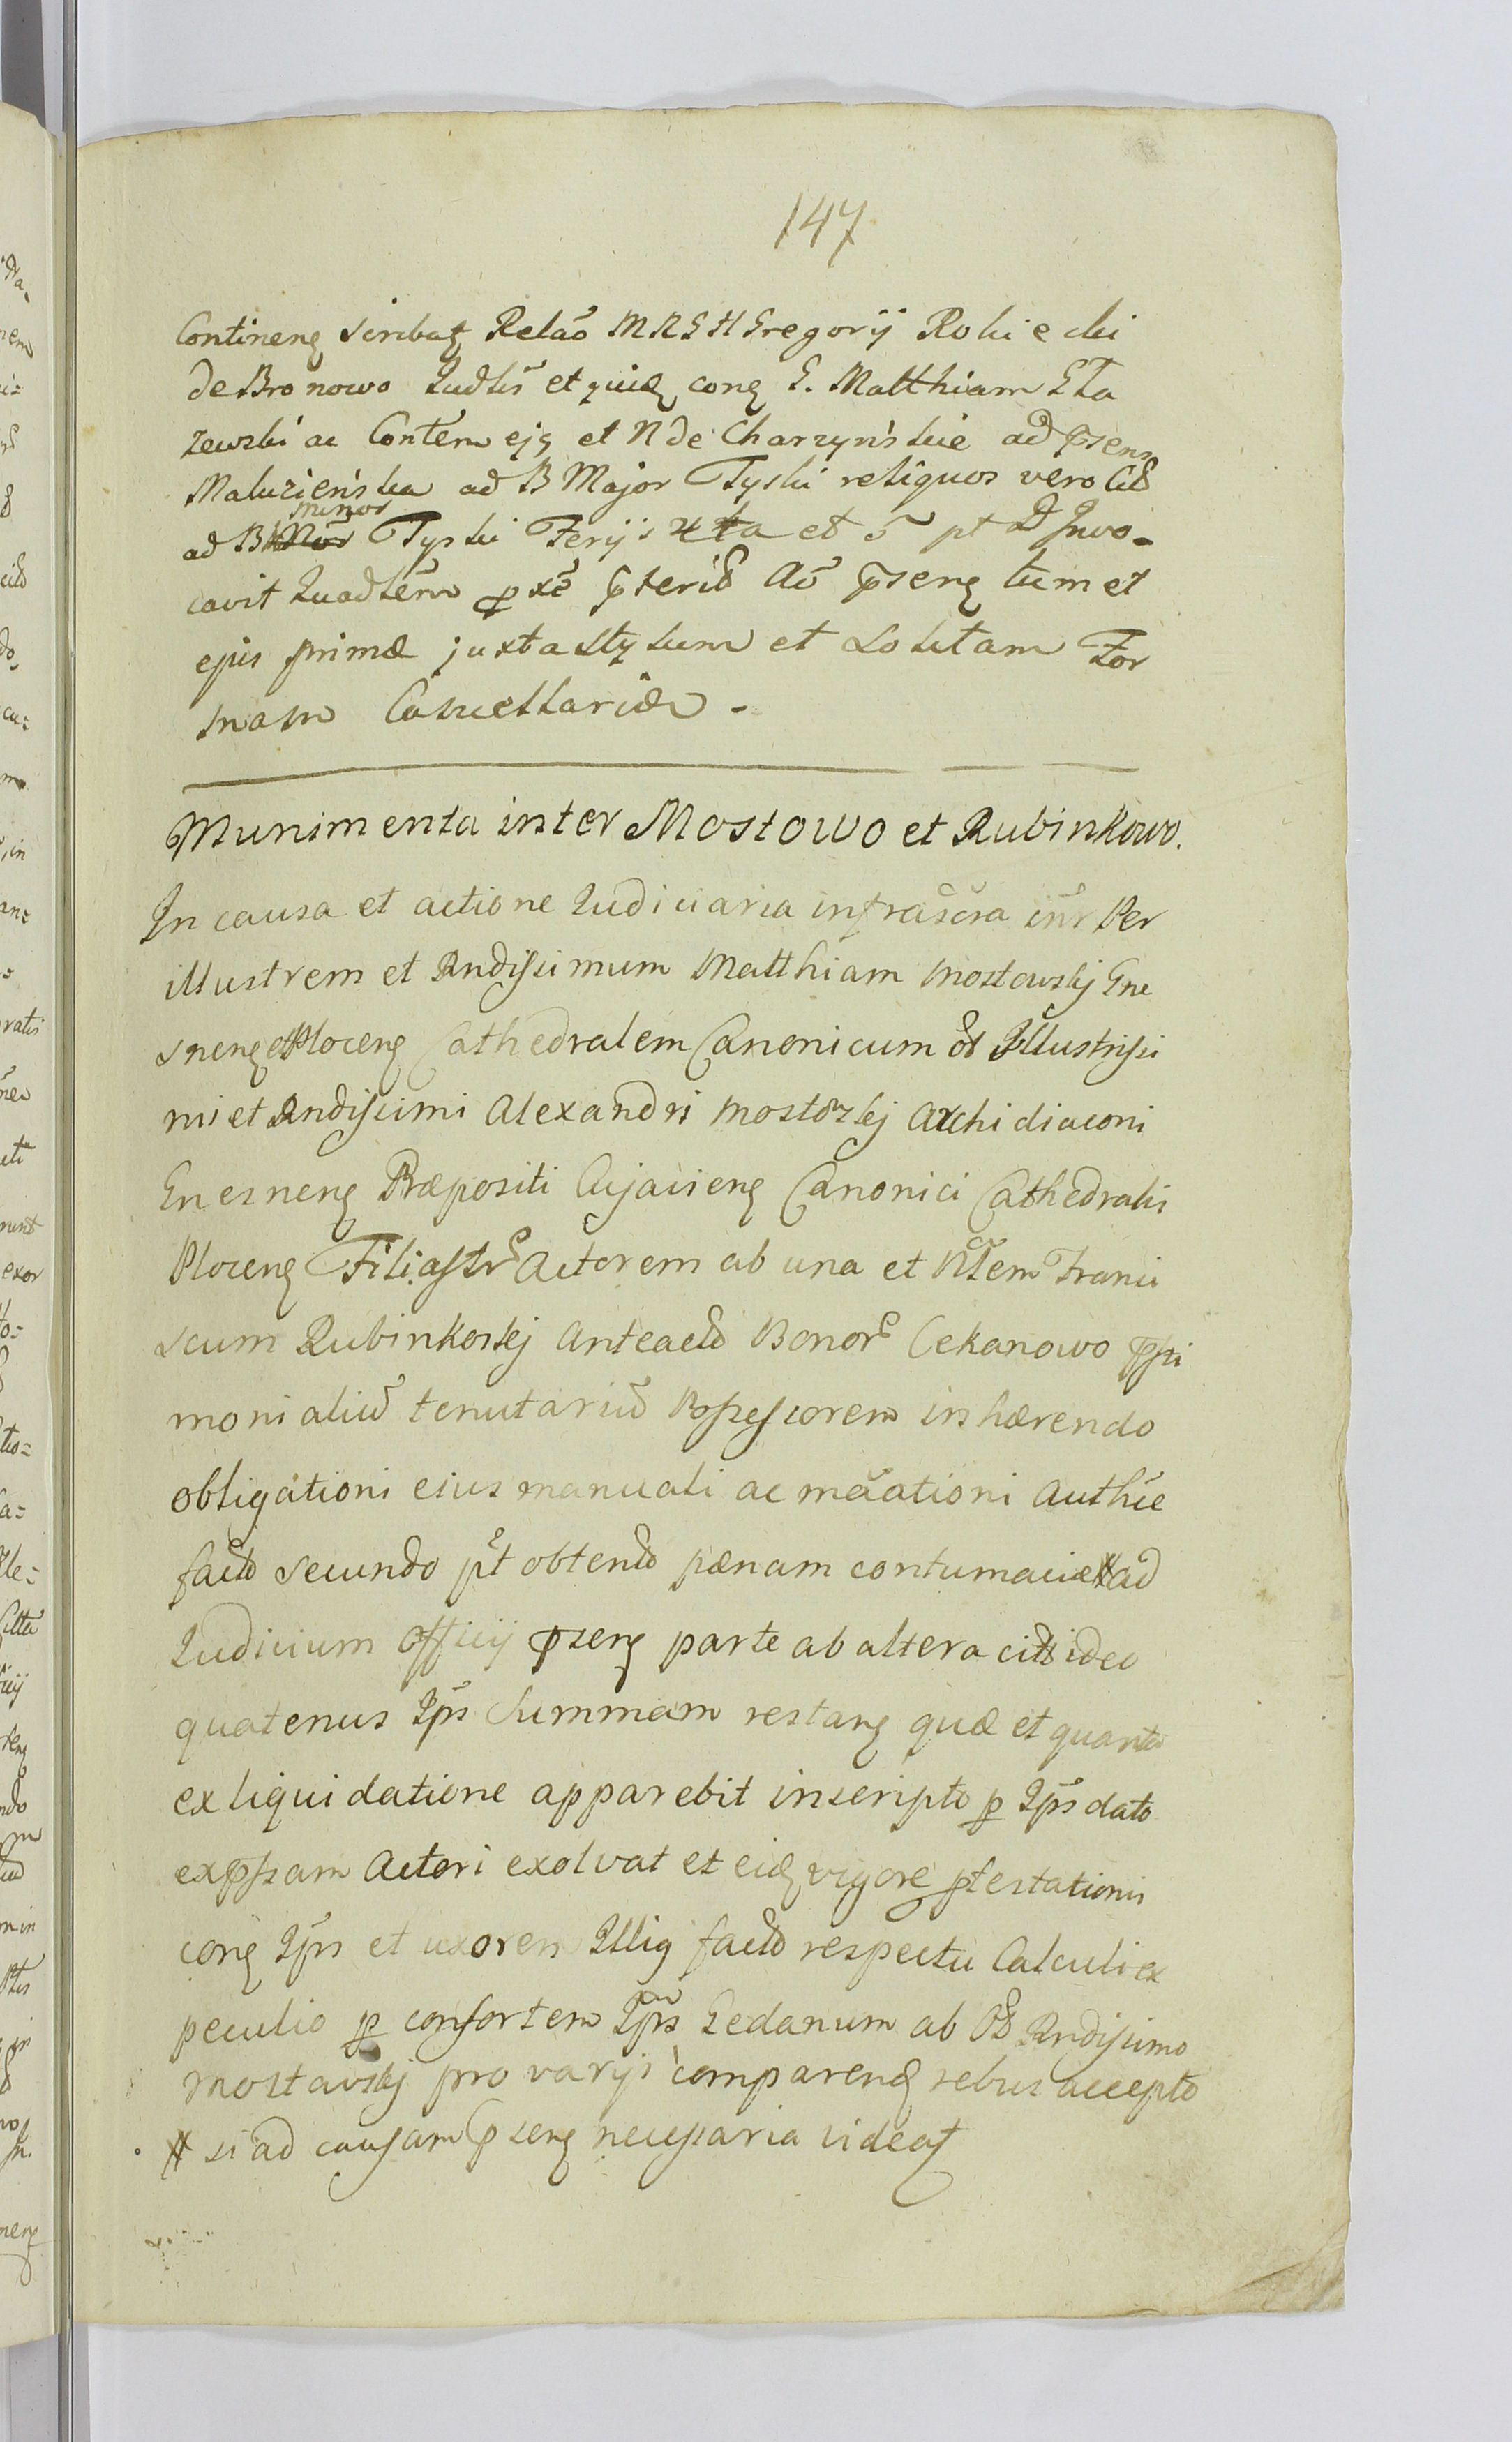 147
Contineng scribatz Relaõ M N G H Gregorij Rokicki
de Bronowo Judlis et quidz cong G. Matthiam Gta
zewski ac Contem ejg et N de Charzynskie ad psens
Maluzienska ad B Major Tyski reliquos vero Citt
minor
ad B Tyski Ferijs 4ta et 5 pt D Invo-
cavit Quadlem pxe pterit Aõ pseng tum et
ejus primæ juxta stylum et solutam For
mam Cancellariæ -
Munimenta inter Mostowo et Rubinkowo.
In causa et actione Judiciaria infrascra intr Per
illustrem et Rndissimum Matthiam Mostowskj Gne
sneng et Ploceng Cathedralem Canonicum olt Illustrissi
mi et Rndissimi Alexandri Mostowskj Archidiaconi
Gnesneng Præpositi Cujavieng Canonici Cathedralis
Ploceng Filiastr Actorem ab una et Nlem Franci
scum Rubinkoskj Anteacto Bonor Cekanowo ptri
monialiu tenutariu Possessorem inhærendo
obligationi eius manuali ac maationi Authce
facto secundo pt obtento pænam contumaciæ # ad
Judicium Officij pseng parte ab altera citto ideo
quatenus Ips Summam restang quæ et quanta
ex liquidatione apparebit inscripto p Ips dato
expssam Actori exolvat et eidz vigore ptestationis
cong Ips et uxorem Illig facto respectu Calculi ex
peculio p consortem Ips Gedanum ab Olt Rndissimo
Mostowskj pro varijs comparend rebus accepto
# si ad causam pseng necessaria videatz